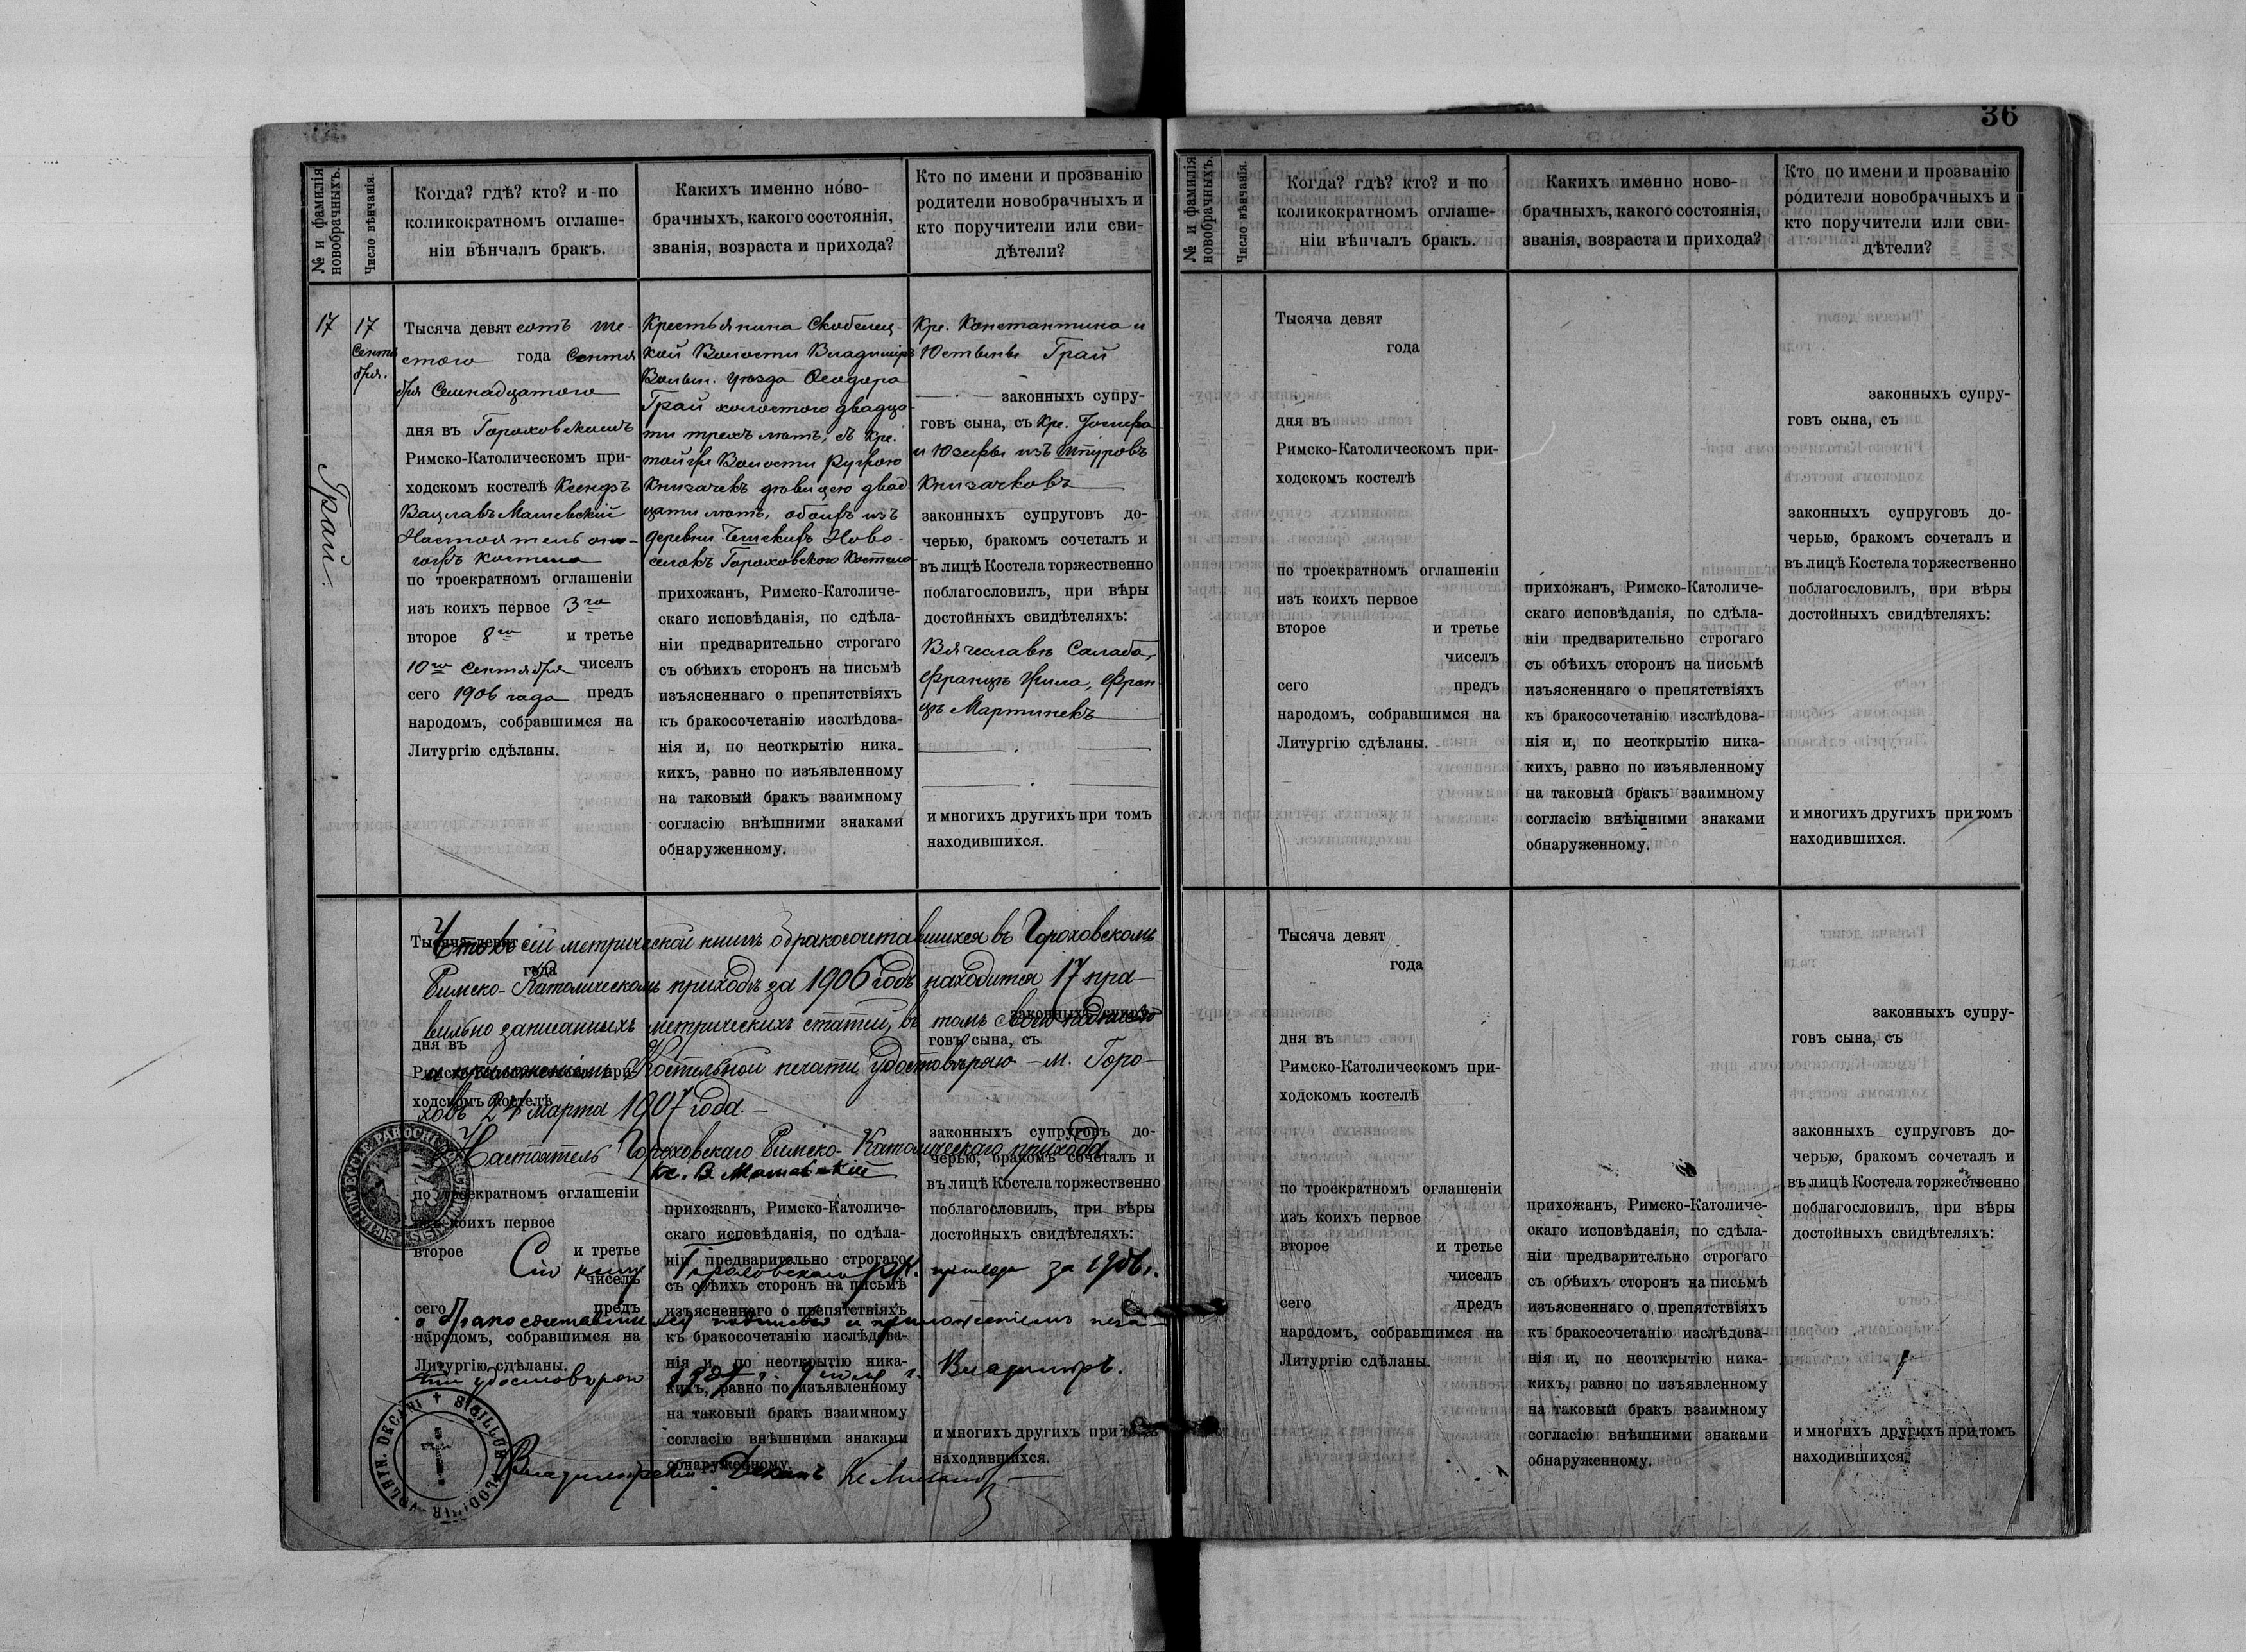 36
№ и фамилія новобрачныхъ.
Число вѣнчанія.
Когда? гдѣ? кто? и по
коликократномъ оглаше-
ніи вѣнчалъ бракъ.
Какихъ именно ново-
брачныхъ, какого состоянія,
званія, возраста и прихода?
Кто по имени и прозванію
родители новобрачныхъ и
кто поручители или сви-
дѣтели?
17
Грай.
17
Сентя
бря.
Тысяча девятсотъ ше-
стого года Сентя
бря Семнадцатого
дня въ Гороховскомъ
Римско-Католическомъ при-
ходскомъ костелѣ Ксендзъ
Вацлавъ Машевскій
Настоятель
костела
по троекратномъ оглашеніи
изъ коихъ первое 3го
второе 8го и третье
10го Сентября чиселъ
сего 1906 года предъ
народомъ, собравшимся на
Литургію сдѣланы.
Крестьянина Скобелец-
кой Волости Владимір
Волын. уѣзда Ѳеодора
Грай холостого двадца-
ти трехъ лѣтъ, съ кре.
той же Волости
Книзачекъ дѣвицею двад
цати лѣтъ, обоихъ изъ
деревни Чешскихъ Ново-
селокъ Гороховского Костела
прихожанъ, Римско-Католиче-
скаго исповѣданія, по сдѣла-
ніи предварительно строгаго
съ обѣихъ сторонъ на письмѣ
изъясненнаго о препятствіяхъ
къ бракосочетанію изслѣдова-
нія и, по неоткрытію ника-
кихъ, равно по изъявленному
на таковый бракъ взаимному
согласію внѣшними знаками
обнаруженному.
Кре. Константина и
Юстыны Грай
законныхъ супру-
говъ сына, съ кре. Іосифа
и Юзефы изъ
Книзачковъ
законныхъ супруговъ до-
черью, бракомъ сочеталъ и
въ лицѣ Костела торжественно
поблагословилъ, при вѣры
достойныхъ свидѣтеляхъ:
Вячеславъ Салаба,
Францъ Фран-
цъ Мартинекъ
и многихъ другихъ при томъ
находившихся.
Что въ сій метрической книгѣ о бракосочетавшихся въ Гороховскомъ
Римско-Католическомъ приходѣ за 1906 годъ находится 17 пра-
вильно записанныхъ метрическихъ статей, въ томъ своею подписью
и приложеніемъ Костельной печати удостовѣряю — м. Горо-
ховъ 24 марта 1907 года. —
Настоятель Гороховскаго Римско-Католическаго прихода
Кс. В Машевскій
Тысяча девят
года
дня въ
Римско-Католическомъ при-
ходскомъ костелѣ
по троекратномъ оглашеніи
изъ коихъ первое
второе и третье
чиселъ
сего предъ
народомъ, собравшимся на
Литургію сдѣланы.
прихожанъ, Римско-Католиче-
скаго исповѣданія, по сдѣла-
ніи предварительно строгаго
съ обѣихъ сторонъ на письмѣ
изъясненнаго о препятствіяхъ
къ бракосочетанію изслѣдова-
нія и, по неоткрытію ника-
кихъ, равно по изъявленному
на таковый бракъ взаимному
согласію внѣшними знаками
обнаруженному.
законныхъ супру-
говъ сына, съ
законныхъ супруговъ до-
черью, бракомъ сочеталъ и
въ лицѣ Костела торжественно
поблагословилъ, при вѣры
достойныхъ свидѣтеляхъ:
и многихъ другихъ при томъ
находившихся.
Сію книгу Гороховскаго Р.К. прихода за 1906 г.
о бракосочетавшихся подписью и приложеніемъ печа-
ти удостовѣряю 1907 г. Владиміръ.
Владимірскій Деканъ
SIGILLUM DECANI
№ и фамилія новобрачныхъ.
Число вѣнчанія.
Когда? гдѣ? кто? и по
коликократномъ оглаше-
ніи вѣнчалъ бракъ.
Какихъ именно ново-
брачныхъ, какого состоянія,
званія, возраста и прихода?
Кто по имени и прозванію
родители новобрачныхъ и
кто поручители или сви-
дѣтели?
Тысяча девят
года
дня въ
Римско-Католическомъ при-
ходскомъ костелѣ
по троекратномъ оглашеніи
изъ коихъ первое
второе и третье
чиселъ
сего предъ
народомъ, собравшимся на
Литургію сдѣланы.
прихожанъ, Римско-Католиче-
скаго исповѣданія, по сдѣла-
ніи предварительно строгаго
съ обѣихъ сторонъ на письмѣ
изъясненнаго о препятствіяхъ
къ бракосочетанію изслѣдова-
нія и, по неоткрытію ника-
кихъ, равно по изъявленному
на таковый бракъ взаимному
согласію внѣшними знаками
обнаруженному.
законныхъ супру-
говъ сына, съ
законныхъ супруговъ до-
черью, бракомъ сочеталъ и
въ лицѣ Костела торжественно
поблагословилъ, при вѣры
достойныхъ свидѣтеляхъ:
и многихъ другихъ при томъ
находившихся.
Тысяча девят
года
дня въ
Римско-Католическомъ при-
ходскомъ костелѣ
по троекратномъ оглашеніи
изъ коихъ первое
второе и третье
чиселъ
сего предъ
народомъ, собравшимся на
Литургію сдѣланы.
прихожанъ, Римско-Католиче-
скаго исповѣданія, по сдѣла-
ніи предварительно строгаго
съ обѣихъ сторонъ на письмѣ
изъясненнаго о препятствіяхъ
къ бракосочетанію изслѣдова-
нія и, по неоткрытію ника-
кихъ, равно по изъявленному
на таковый бракъ взаимному
согласію внѣшними знаками
обнаруженному.
законныхъ супру-
говъ сына, съ
законныхъ супруговъ до-
черью, бракомъ сочеталъ и
въ лицѣ Костела торжественно
поблагословилъ, при вѣры
достойныхъ свидѣтеляхъ:
и многихъ другихъ при томъ
находившихся.